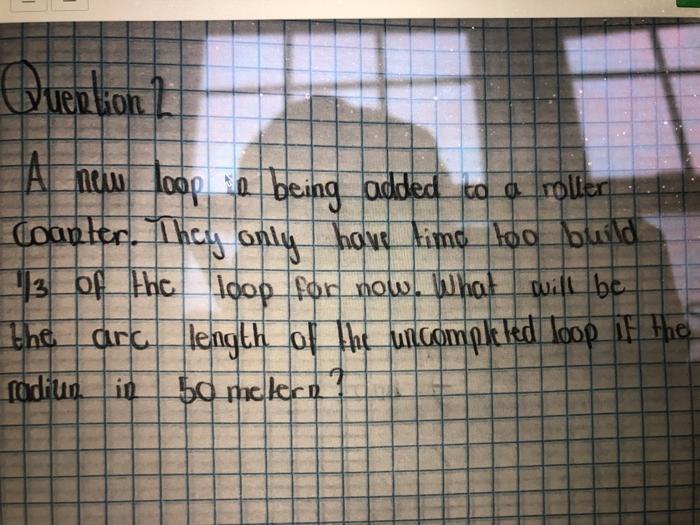 Question 2
A new loop is being added to a roller
coaster. They only have time too build
1/3 of the loop for now. What will be
the arc length of the uncompleted loop if the
radius is 50 meters?